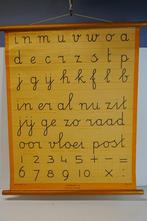 i n m u v w o a
d e c r z s t p
j g y h k f l b
in er al nu zit
jij ge zo raad
oor vloer post
1 2 3 4 5 + - =
6 7 8 9 10 × :